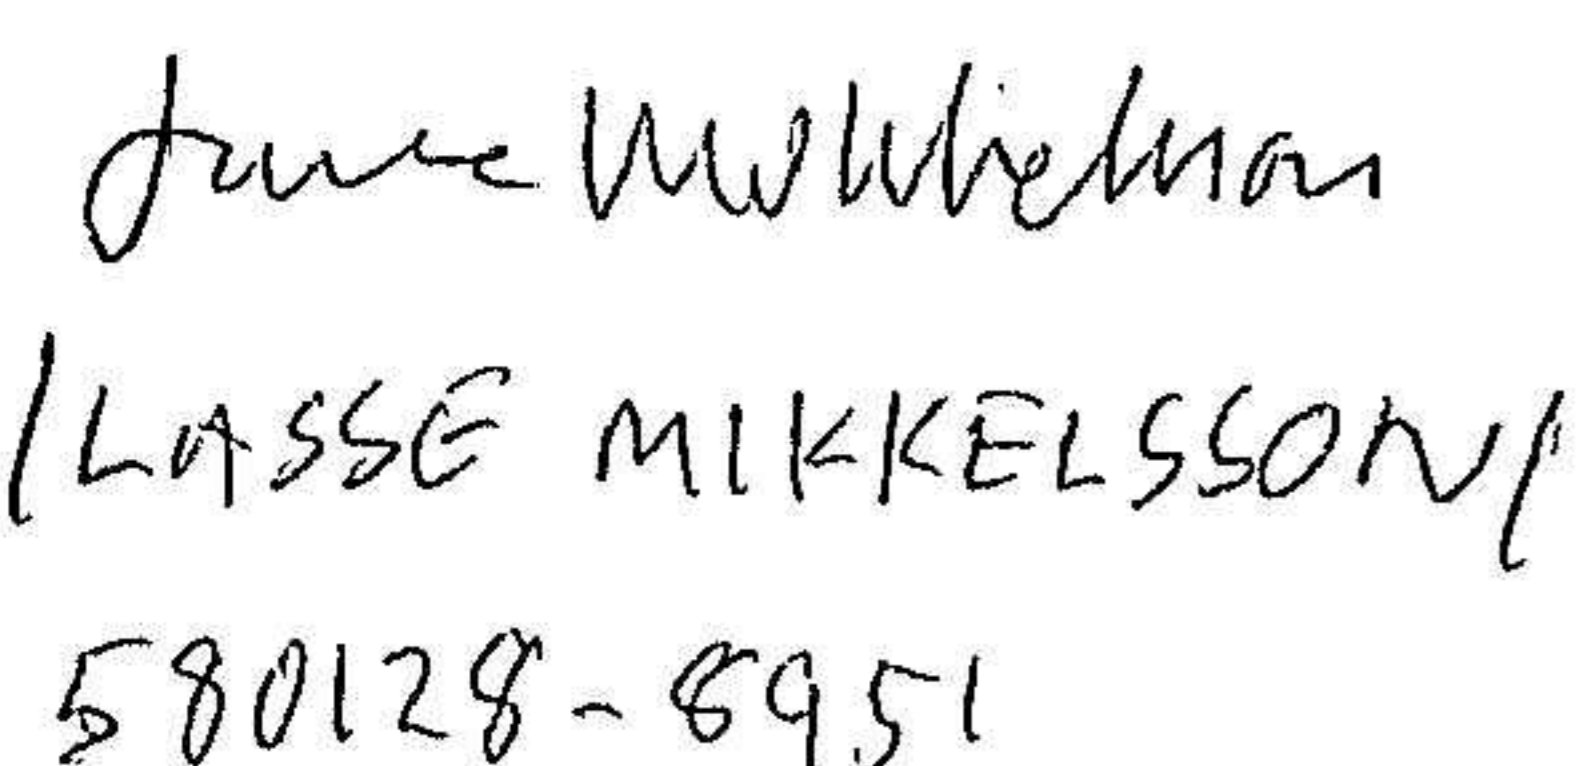 Lasse Mikkelsson
/LASSE MIKKELSSON/
580128-8951